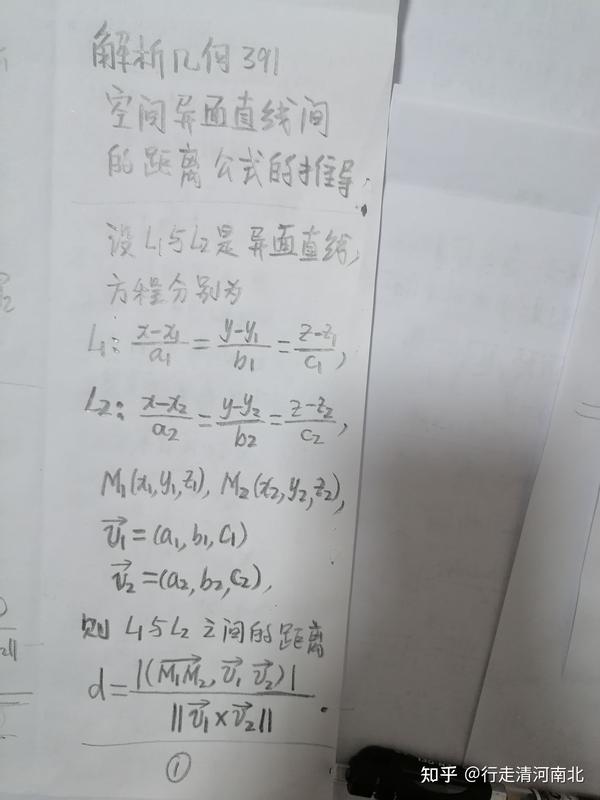 解析几何391
空间异面直线间
的距离公式的推导.
设L₁与L₂是异面直线,
方程分别为
L₁: (x-x₁)/a₁ = (y-y₁)/b₁ = (z-z₁)/c₁,
L₂: (x-x₂)/a₂ = (y-y₂)/b₂ = (z-z₂)/c₂,
M₁(x₁,y₁,z₁), M₂(x₂,y₂,z₂),
v₁⃗=(a₁,b₁,c₁)
v₂⃗=(a₂,b₂,c₂),
则 L₁与L₂之间的距离
d = |(M₁M₂⃗, v₁⃗, v₂⃗)| / ||v₁⃗×v₂⃗||.
①
知乎 @行走清河南北